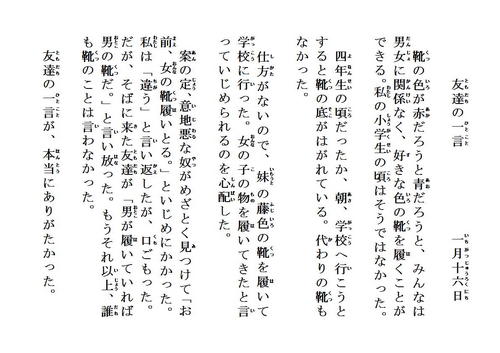 友達の一言　一月十六日
靴の色が赤だろうと青だろうと、みんなは
男女に関係なく、好きな色の靴を履くことが
できる。私の小学生の頃はそうではなかった。
四年生の頃だったか、朝、学校へ行こうと
すると靴の底がはがれている。代わりの靴も
なかった。
仕方がないので、妹の藤色の靴を履いて
学校に行った。女の子の物を履いてきたと言
っていじめられるのを心配した。
案の定、意地悪な奴がめざとく見つけて「お
前、女の靴履いとる。」といじめにかかった。
私は「違う」と言い返したが、口ごもった。
だが、そばに来た友達が「男が履いていれば
男の靴だ。」と言い放った。もうそれ以上、誰
も靴のことは言わなかった。
友達の一言が、本当にありがたかった。